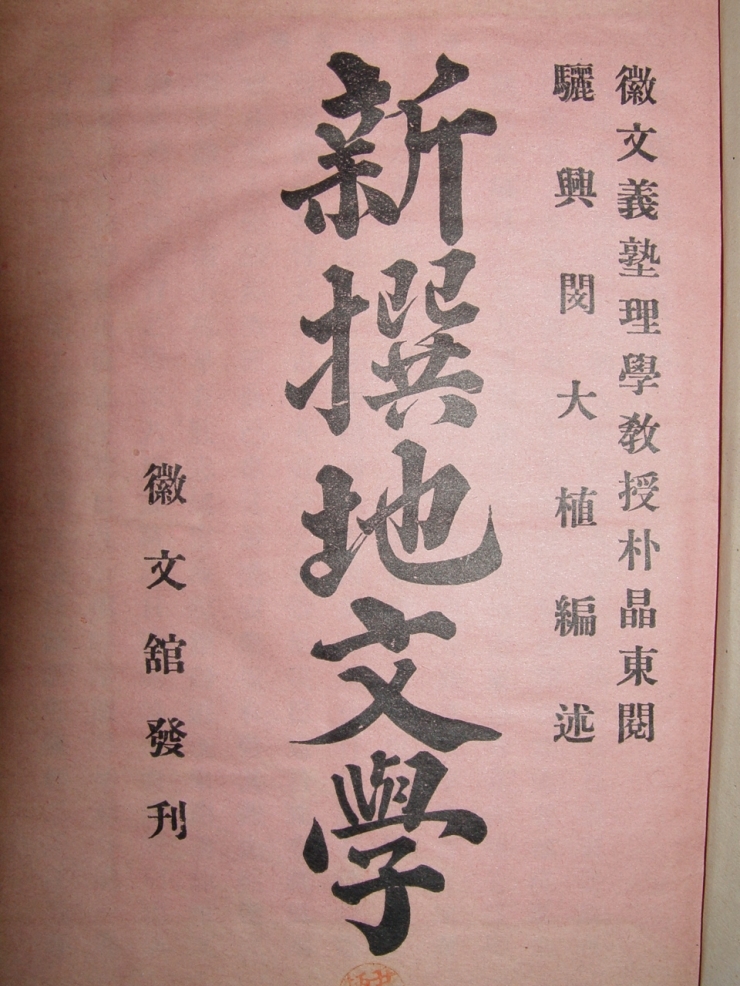 徽文義塾理學教授朴晶東閱
驪興閔大植編述
新撰地文學
徽文舘發刊